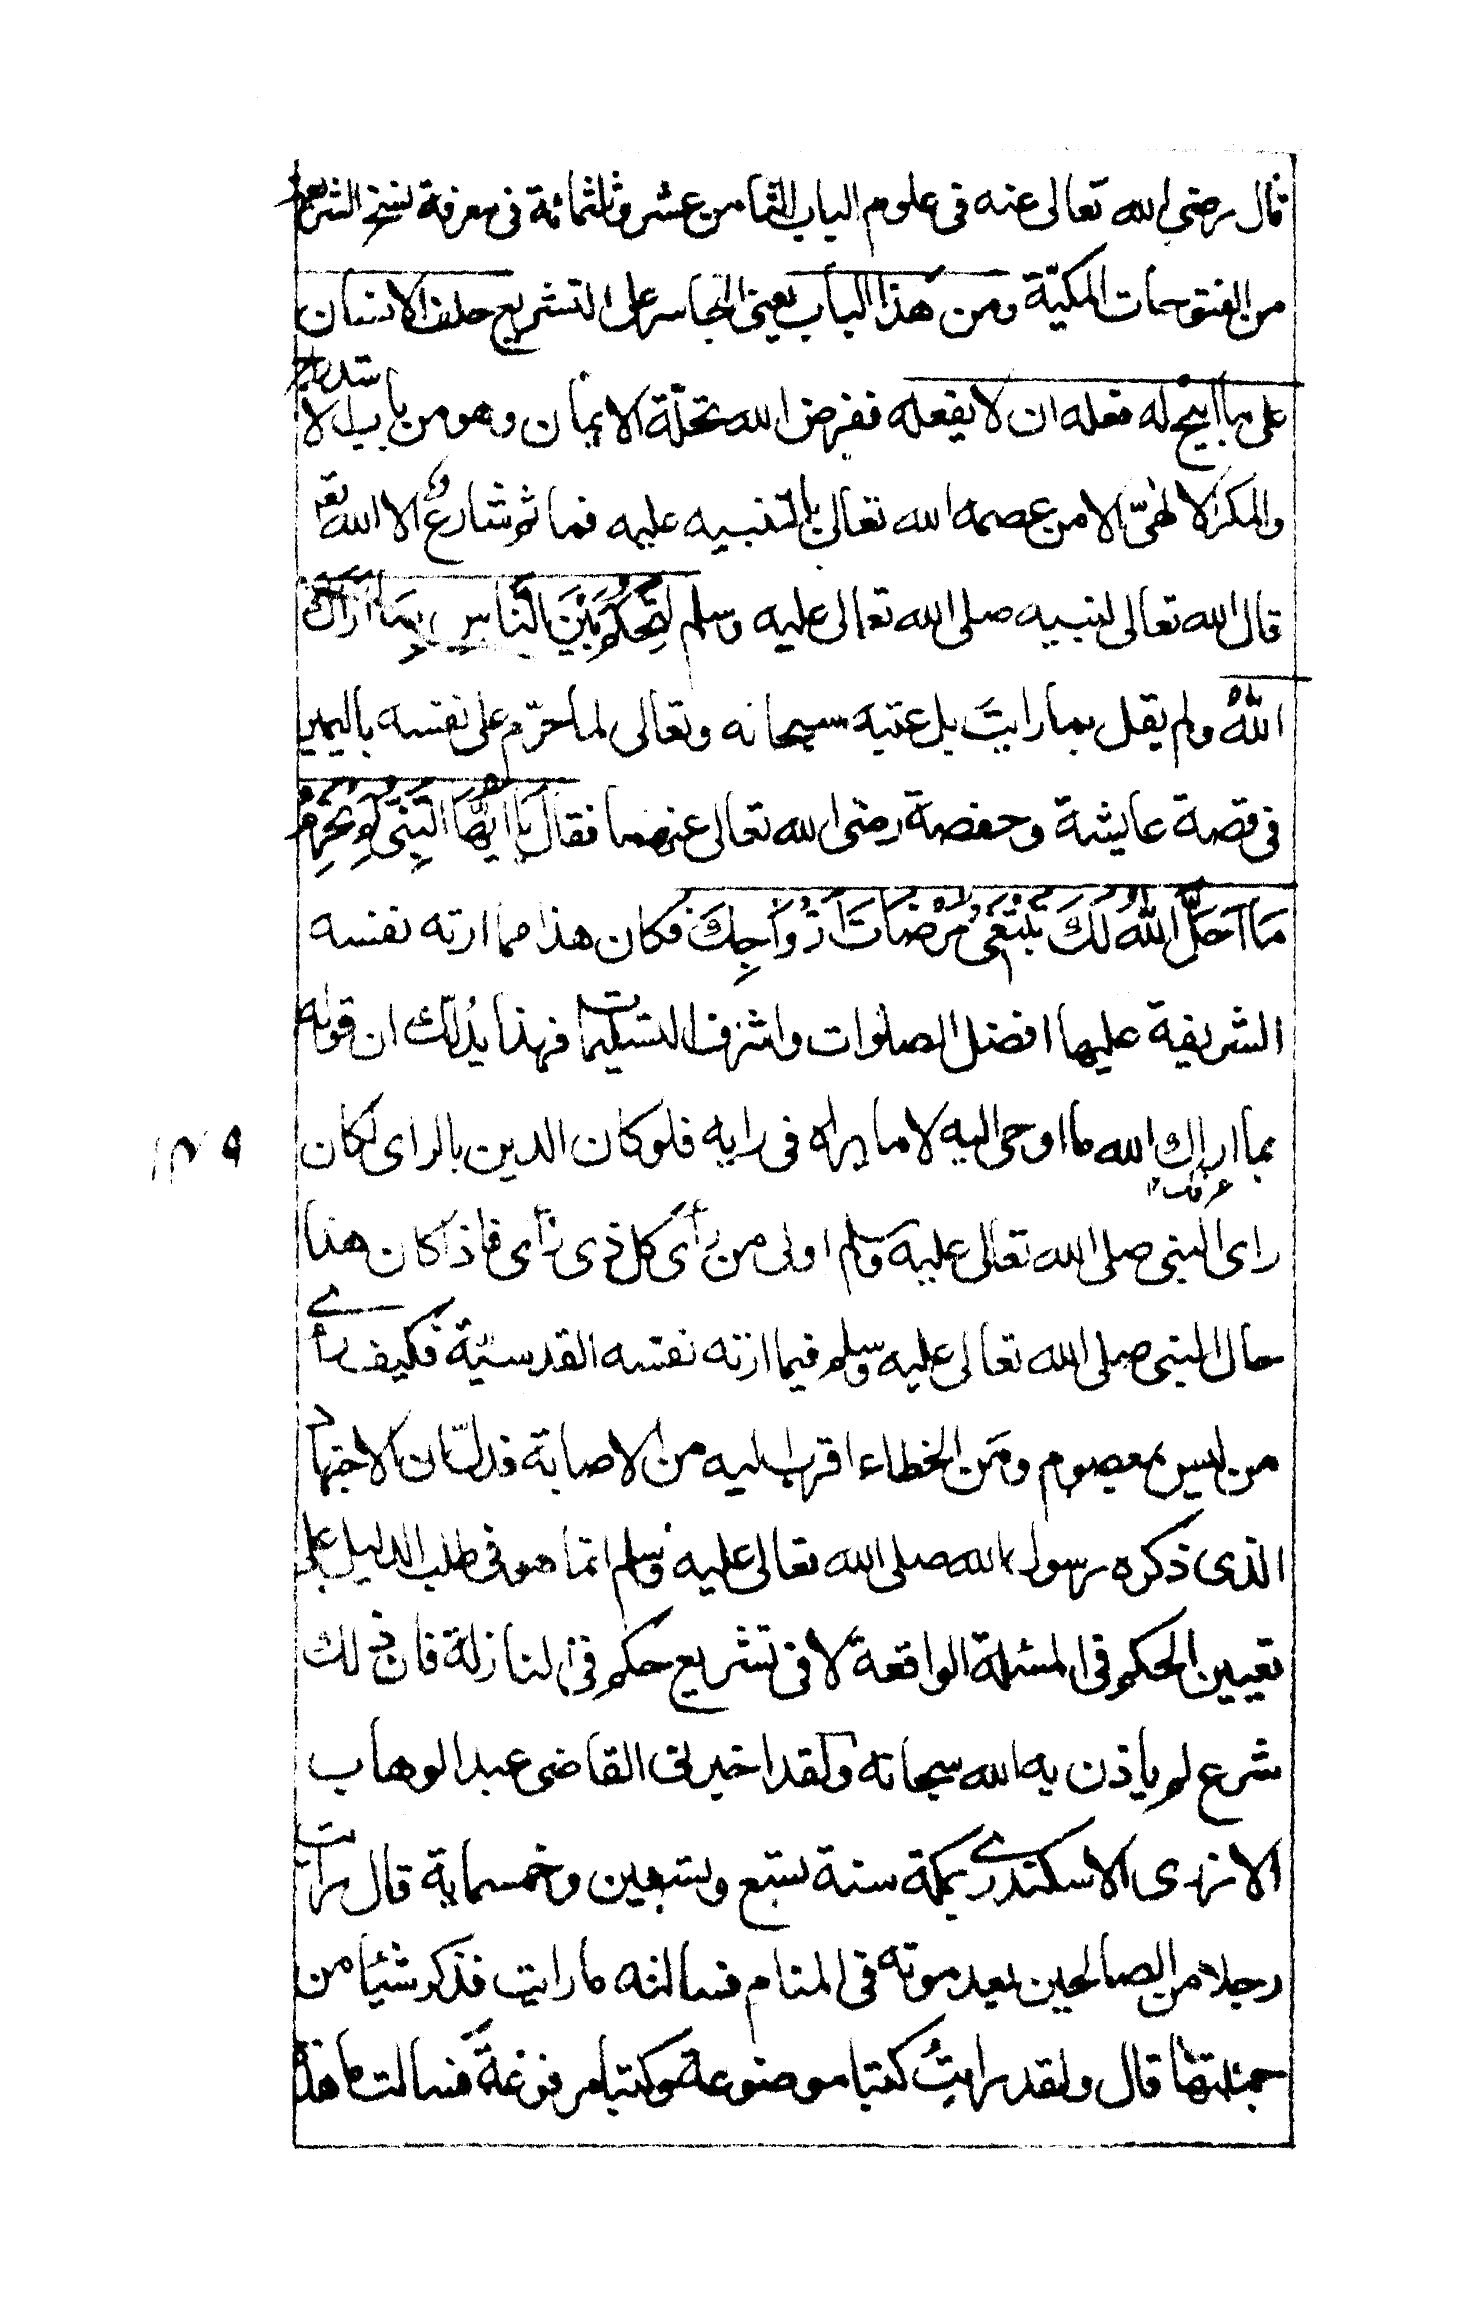 قال رضى الله تعالى عنه فى علوم الباب الثامن عشر وثلثمائة فى معرفة نسخ الشريعة
من الفتوحات المكيّة ومن هذا الباب يعنى الجاسر على التشريع حلف الانسان
على ما ابيح له فعله ان لا يفعله ففرض الله تحلّة الايمان وهو من باب الاستدراج
والمكر الالهىّ الا من عصمه الله تعالى بالتنبيه عليه فما ثم شارعٌ الا الله تعا
قال الله تعالى لنبيه صلى الله تعالى عليه وسلم لِتَحْكُمَ بَيْنَ النَّاسِ بِمَا اَرَاكَ
اللّٰهُ ولم يقل بما رايتَ بل عتبه سبحانه وتعالى لما حرّم على نفسه باليمين
فى قصة عايشة وحفصة رضى الله تعالى عنهما فقال يَا اَيُّهَا النَّبِىُّ لِمَ تُحَرِّمُ
مَا اَحَلَّ اللّٰهُ لَكَ تَبْتَغِى مَرْضَاتَ اَزْوَاجِكَ فكان هذا مما ارته نفسه
الشريفة عليها افضل الصلوات واشرف التسليمات فهذا يدُلّك ان قوله
بما اراك الله ما اوحى اليه لا ما يراه فى رايه فلو كان الدين بالراى لكان
عرفك
راى النبى صلى الله تعالى عليه وسلم اولى من رأى كل ذى رأى فاذا كان هذا
حال النبى صلى الله تعالى عليه وسلم فيما ارته نفسه القدسيّة فكيف رأى
من ليس بمعصوم ومَن الخطاء اقرب اليه من الاصابة فدلّ ان الاجتهاد
الذى ذكره رسول الله صلى الله تعالى عليه وسلم انما هو فى طلب الدليل على
تعيين الحكم فى المسئلة الواقعة لا فى تشريع حكم فى النازلة فان ذلك
شرع لم ياذن به الله سبحانه ولقد اخبرنى القاضى عبد الوهاب
الازدى الاسكندرى بمكة سنة تسع وتسعين وخمسماية قال رايت
رجلا من الصالحين بعد موته فى المنام فسالته ما رايت فذكر شيئا من
جملتها قال ولقد رايتُ كتبا موضوعة وكتبا مرفوعةً فسالت ما هذه
١٣٩